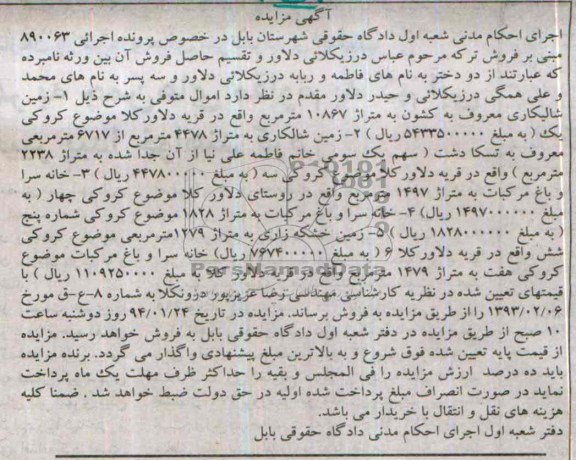 آگهی مزایده
اجرای احکام مدنی شعبه اول دادگاه حقوقی شهرستان بابل در خصوص پرونده اجرائی ۸۹۰۰۶۳
مبنی بر فروش ترکه مرحوم عباس درزیکلائی دلاور و تقسیم حاصل فروش آن بین ورثه نامبرده
که عبارتند از دو دختر به نام های فاطمه و ربابه درزیکلائی دلاور و سه پسر به نام های محمد
و علی همگی درزیکلائی و حیدر دلاور مقدم در نظر دارد اموال متوفی به شرح ذیل ۱- زمین
شالیکاری معروف به کشون به متراژ ۱۰۸۶۷ مترمربع واقع در قریه دلاورکلا موضوع کروکی
یک ( به مبلغ ۵۴۳۳۵۰۰۰۰۰ ریال ) ۲- زمین شالکاری به متراژ ۴۴۷۸ مترمربع از ۶۷۱۷ مترمربعی
معروف به تسکا دشت ( سهم یک سومی خانم فاطمه علی نیا از آن جدا شده به متراژ ۲۲۳۸
مترمربع ) واقع در قریه دلاورکلا موضوع کروکی سه ( به مبلغ ۴۴۷۸۰۰۰۰۰ ریال ) ۳- خانه سرا
و باغ مرکبات به متراژ ۱۴۹۷ مترمربع واقع در روستای دلاور کلا موضوع کروکی چهار ( به
مبلغ ۱۴۹۷۰۰۰۰۰۰ ریال) ۴- خانه سرا و باغ مرکبات به متراژ ۱۸۲۸ موضوع کروکی شماره پنج
( به مبلغ ۱۸۲۸۰۰۰۰۰۰ ریال ) ۵- زمین خشکه زاری به متراژ ۱۲۷۹مترمربعی موضوع کروکی
شش واقع در قریه دلاورکلا ۶ ( به مبلغ ۷۶۷۴۰۰۰۰۰ ریال) خانه سرا و باغ مرکبات موضوع
کروکی هفت به متراژ ۱۴۷۹ مترمربع واقع در قریه دلاور کلا به مبلغ ۱۱۰۹۲۵۰۰۰۰ ریال ) با
قیمتهای تعیین شده در نظریه کارشناسی مهندس رضا عزیزپور درونکلا به شماره ۸-ع-ق مورخ
۱۳۹۳/۰۲/۰۶ را از طریق مزایده به فروش برساند. مزایده در تاریخ ۹۴/۰۱/۲۴ روز دوشنبه ساعت
۱۰ صبح از طریق مزایده در دفتر شعبه اول دادگاه حقوقی بابل به فروش خواهد رسید. مزایده
از قیمت پایه تعیین شده فوق شروع و به بالاترین مبلغ پیشنهادی واگذار می گردد. برنده مزایده
باید ده درصد ارزش مزایده را فی المجلس و بقیه را حداکثر ظرف مهلت یک ماه پرداخت
نماید در صورت انصراف مبلغ پرداخت شده اولیه در حق دولت ضبط خواهد شد . ضمنا کلیه
هزینه های نقل و انتقال با خریدار می باشد.
دفتر شعبه اول اجرای احکام مدنی دادگاه حقوقی بابل